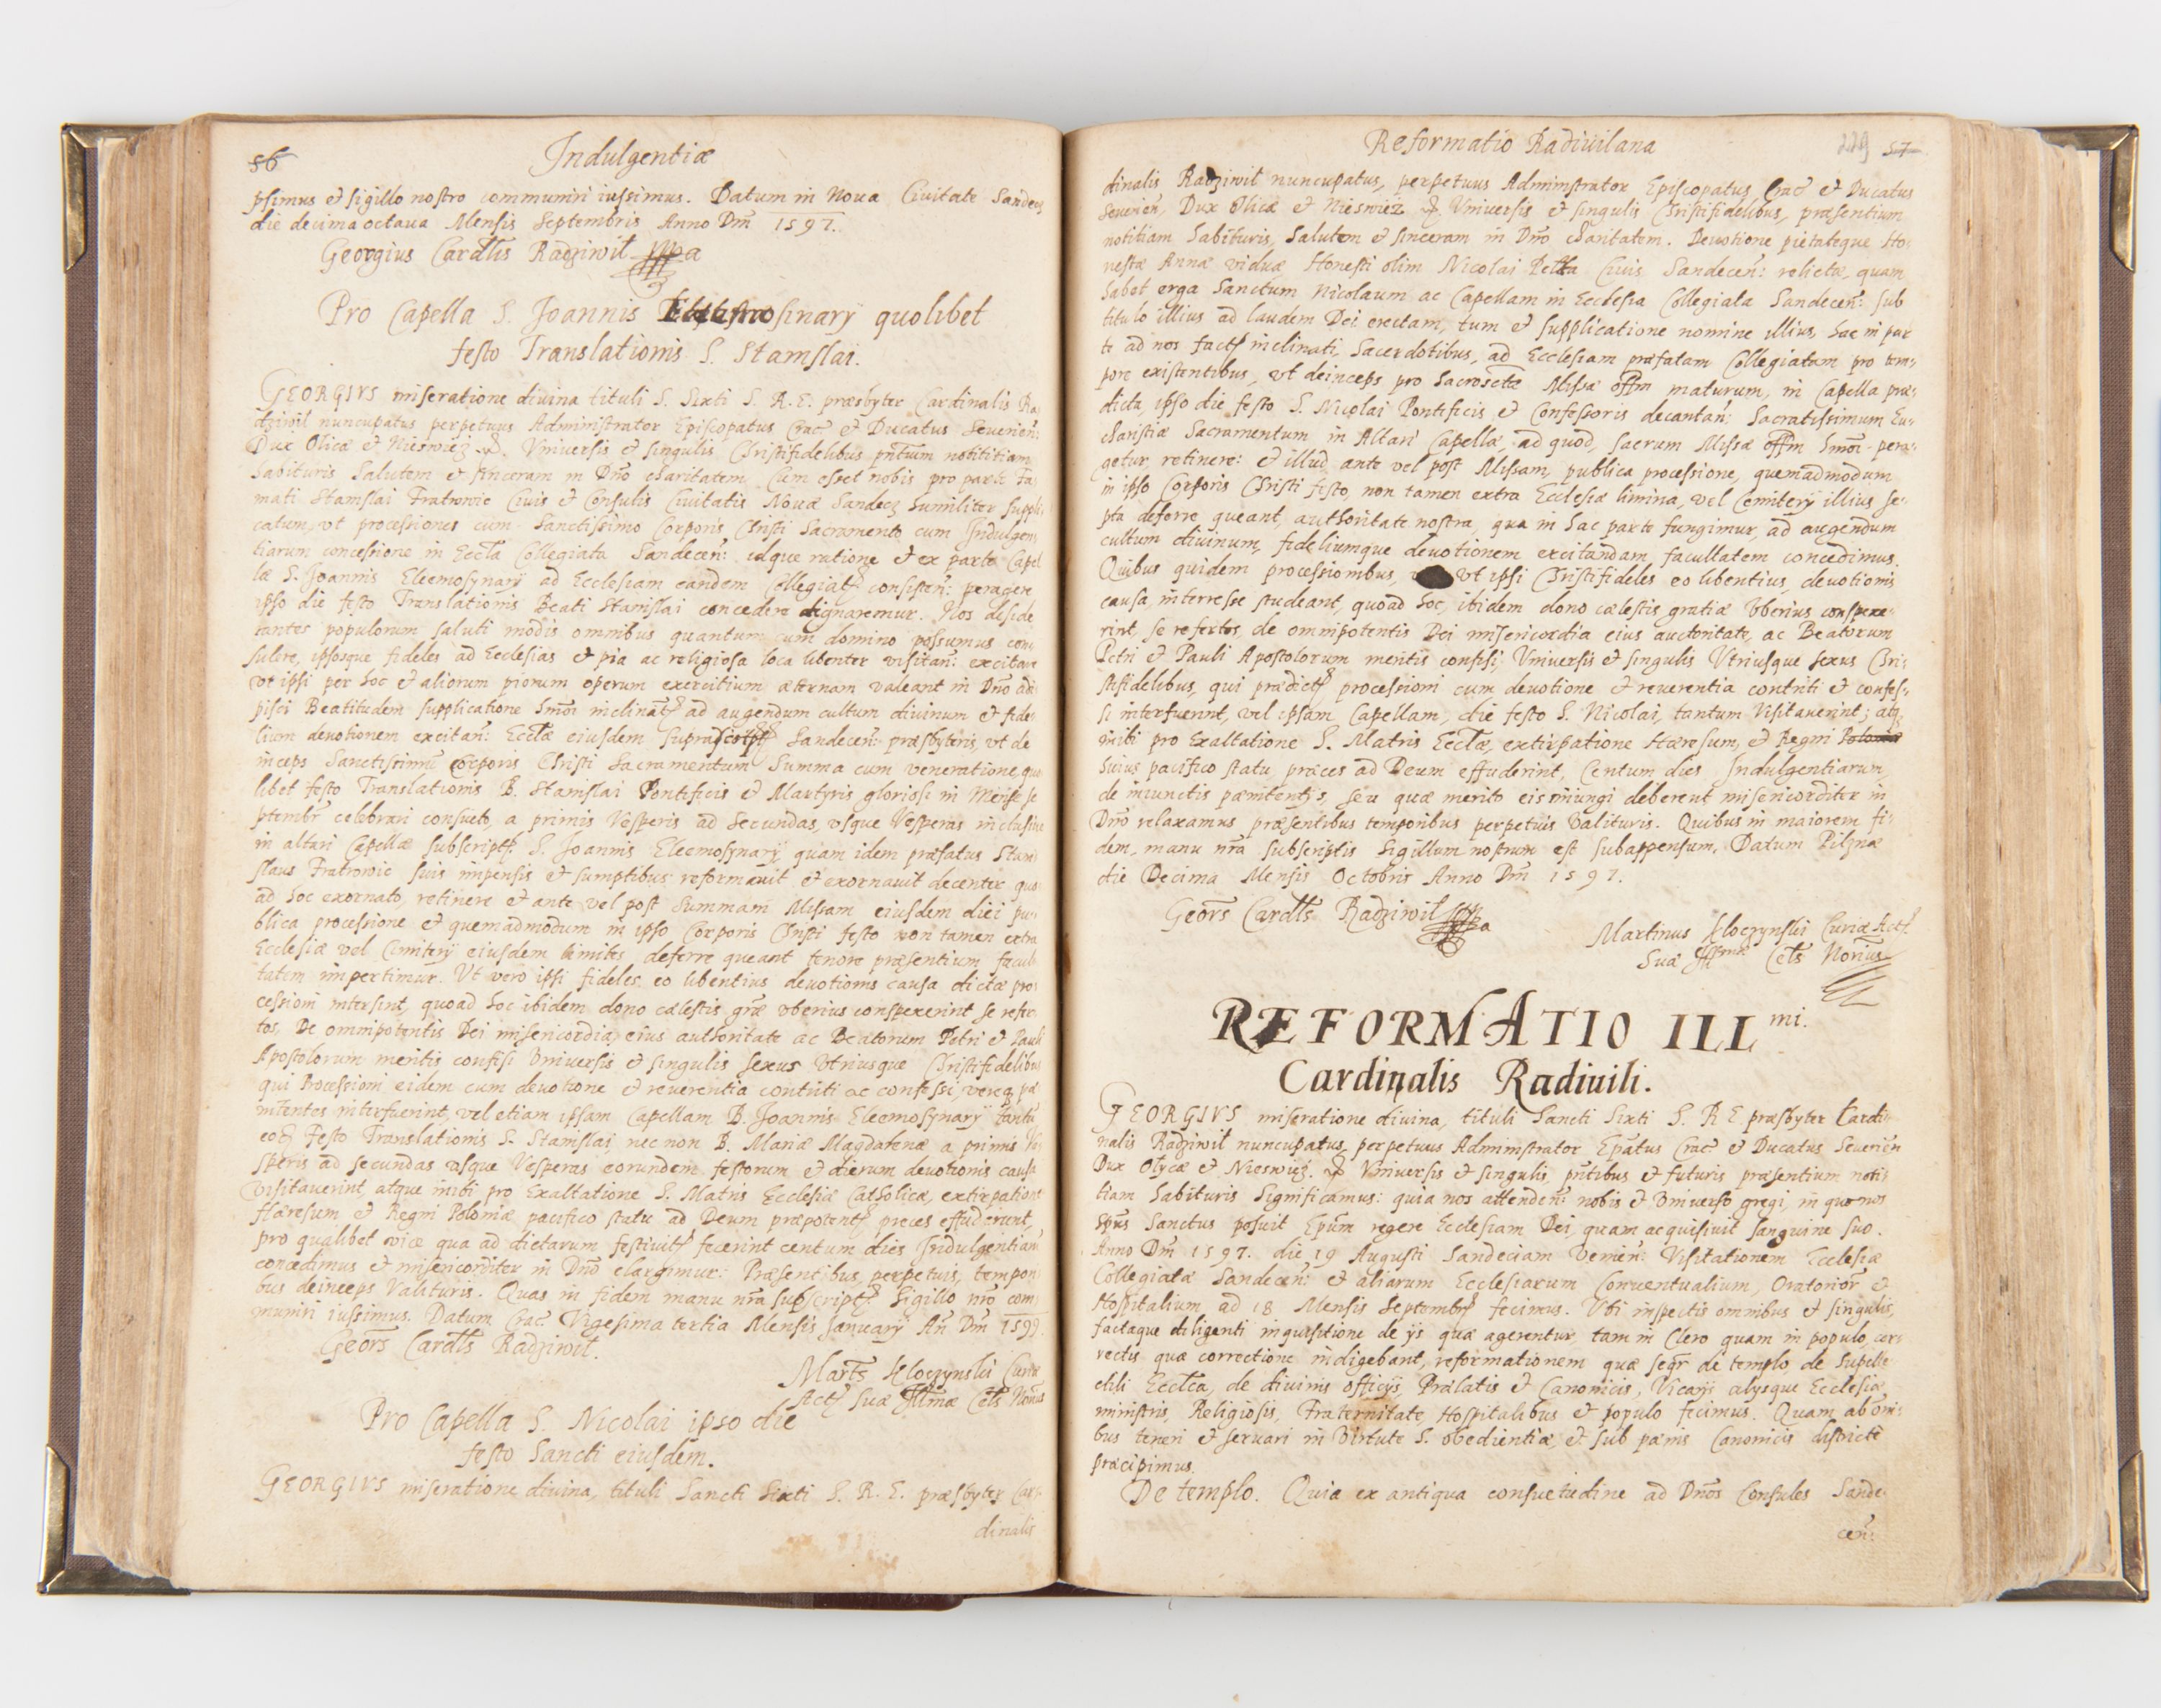 56
Indulgentiæ
psimus et sigillo nostro communiri iussimus. Datum in Noua Ciuitate Sandecz
die decima octaua Mensis Septembris Anno Dni 1597.
Georgius Cardlis Radziwił
Pro Capella S. Joannis Eleemosinarÿ quolibet
festo Translationis S. Stanislai.
GEORGIVS miseratione diuina tituli S. Sixti S. R. E. præsbyter Cardinalis Ra
dziwil nuncupatus perpetuus Administrator Episcopatus Crac. et Ducatus Seuerien:
Dux Olicæ et Nieswiez &. Vniuersis et singulis Christifidelibus pñtium notititiam
habituris Salutem et sinceram in Dno charitatem. Cum esset nobis pro parte Fa
mati Stanislai Fratrowic Ciuis et Consulis Ciuitatis Nouæ Sandecz humiliter suppli
catum, vt processiones cum Sanctissimo Corporis Christi Sacramento cum Indulgen
tiarum concessione in Eccla Collegiata Sandecen: idque ratione et ex parte Capel
læ S. Joannis Eleemosynarÿ ad Ecclesiam eandem Collegiat: consisten: peragere
ipso die festo Translationis Beati Stanislai concedere dignaremur. Nos deside
rantes populorum saluti modis omnibus quantum cum domino possumus con
sulere, ipsosque fideles ad Ecclesias et pia ac religiosa loca libenter visitan: excitare
vt ipsi per hoc et aliorum piorum operum exercitium æternam valeant in Dno adi
pisci Beatitudem supplicatione hmoi inclinat: ad augendum cultum diuinum et fide
lium deuotionem excitan: Ecclæ eiusdem suprascript: Sandecen: præsbyteris, vt de
inceps Sanctissimũ Corporis Christi Sacramentum Summa cum veneratione, quo
libet festo Translationis B. Stanislai Pontificis et Martyris gloriosi in Mense Se
ptembr celebrari consueto, a primis Vesperis ad Secundas, vsque Vesperas inclusiue
in altari Capellæ subscript: S. Joannis Eleemosynarÿ quam idem præfatus Stani
slaus Fratrowic suis impensis et sumptibus reformauit et exornauit decenter quo
ad hoc exornato, retinere et ante vel post Summam Missam eiusdem diei pu-
blica processione et quemadmodum in ipso Corporis Christi festo non tamen extra
Ecclesiæ vel Cimiterÿ eiusdem limites deferre queant tenore præsentium facul
tatem impertimur. Vt vero ipsi fideles eo libentius deuotionis causa dictæ pro
cessioni intersint, quoad hoc ibidem dono cælestis græ vberius conspexerint se refer
tos, De omnipotentis Dei misericordia, eius authoritate ac Beatorum Petri et Pauli
Apostolorum meritis confisi Vniuersis et singulis sexus Vtriusque Christifidelibus
qui Processioni eidem cum deuotione et reuerentia contriti ac confessi vereq pæ
nitentes interfuerint, vel etiam ipsam Capellam B. Joannis Eleemosynarÿ tantũ
eodẽ Festo Translationis S. Stanislai, nec non B. Mariæ Magdalenæ a primis Ve
speris ad secundas vsque Vesperas eorundem festorum et dierum deuotionis causa
visitauerint, atque inibi pro Exaltatione S. Matris Ecclesiæ Catholicæ, extirpatione
Hæresum et Regni Poloniæ pacifico statu ad Deum præpotent: preces effuderint,
pro qualibet vice qua ad dictarum festiuit: fecerint centum dies Indulgentiarum
concedimus et misericorditer in Dno elargimur: Præsentibus, perpetuis, tempori
bus deinceps Valituris. Quas in fidem manu nra subscript: Sigillo nro com
muniri iussimus. Datum Crac. Vigesima tertia Mensis Januarÿ An Dni 1599.
Geors Cardls Radziwił.
Marts Kloczynski Curiæ
Act: Suæ Illmæ Cels Norius
Pro Capella S. Nicolai ipso die
festo Sancti eiusdem.
GEORGIVS miseratione diuina, tituli Sancti Sixti S. R. E. præsbyter Car-
dinalis
Reformatio Radiuilana
229 57
dinalis Radziwił nuncupatus, perpetuus Administrator Episcopatus Crac. et Ducatus
Seuerien, Dux Olicæ et Nieswiez &. Vniuersis et singulis Christifidelibus, præsentium
notitiam habituris, Salutem et sinceram in Dno charitatem. Deuotione pietateque Ho-
nestæ Annæ viduæ Honesti olim Nicolai Ciuis Sandecen: relictæ, quam
habet erga Sanctum Nicolaum ac Capellam in Ecclesia Collegiata Sandecen: sub
titulo illius ad laudem Dei erectam, tum et supplicatione nomine illius, hac in par
te ad nos fact: inclinati, Sacerdotibus, ad Ecclesiam præfatam Collegiatam pro tem-
pore existentibus, vt deinceps pro Sacrosctæ Missæ offm maturum, in Capella præ-
dicta, ipso die festo S. Nicolai Pontificis et Confessoris decantan: Sacratissimum Eu-
charistiæ Sacramentum in Altari Capellæ, ad quod, sacrum Missæ offm hmoi pera-
getur, retinere: et illud, ante vel post Missam, publica processione, quemadmodum
in ipso Corporis Christi festo, non tamen extra Ecclesiæ limina, vel Cemiterÿ illius se-
pta deferre queant, authoritate nostra, qua in hac parte fungimur, ad augendum
cultum diuinum, fideliumque deuotionem excitandam, facultatem concedimus.
Quibus quidem processionibus, vt ipsi Christifideles eo libentius, deuotionis
causa, interresse studeant, quoad hoc, ibidem dono cælestis gratiæ Vberius conspexe-
rint, se refertos, de omnipotentis Dei misericordia eius auctoritate, ac Beatorum
Petri et Pauli Apostolorum meritis confisi, Vniuersis et singulis Vtriusque sexus Chri-
stifidelibus, qui prædict: processioni cum deuotione et reuerentia contriti et confes-
si interfuerint, vel ipsam Capellam, die festo S. Nicolai, tantum Visitauerint; atq
inibi pro Exaltatione S. Matris Ecclæ, extirpatione Hæresum, et Regni Poloniæ
huius pacifico statu, præces ad Deum effuderint, Centum dies Indulgentiarum,
de iniunctis pænitentÿs, seu quæ merito eis iniungi deberent misericorditer in
Dno relaxamus præsentibus temporibus perpetuis Valituris. Quibus in maiorem fi-
dem, manu nra subscriptis Sigillum nostrum est subappensum. Datum Pilznæ
die Decima Mensis Octobris Anno Dni 1597.
Geors Cardls Radziwił
Martinus Kloczynski Curiæ Act:
Suæ Illmæ Cels Norius
REFORMATIO ILL mi.
Cardinalis Radiuili.
GEORGIVS miseratione diuina, tituli Sancti Sixti S. R E præsbyter Cardi
nalis Radziwił nuncupatus, perpetuus Administrator Epatus Crac. et Ducatus Seuerien
Dux Olycæ et Nieswiez. & Vniuersis et singulis pntibus et futuris præsentium noti-
tiam habituris Significamus: quia nos attenden: nobis et Vniuerso gregi, in quo nos
Spus Sanctus posuit Epum regere Ecclesiam Dei, quam acquisiuit sanguine suo.
Anno Dni 1597. die 19 Augusti Sandeciam Venien: Visitationem Ecclesiæ
Collegiatæ Sandecen: et aliarum Ecclesiarum Conuentualium, Oratorior et
Hospitalium ad 18 Mensis Septembr fecimus. Vbi inspectis omnibus et singulis,
factaque diligenti inquisitione de ÿs quæ agerentur, tam in Clero quam in populo, cor-
rectis quæ correctione indigebant, reformationem quæ seqr de templo, de supelle
ctili Ecclca, de diuinis officÿs, Prælatis et Canonicis, Vicarÿs alÿsque Ecclesiæ
ministris, Religiosis, Fraternitate, Hospitalibus et populo fecimus. Quam ab omi-
bus teneri et seruari in Virtute S. obedientiæ, et sub pænis Canonicis districtè
præcipimus.
De templo. Quia ex antiqua consuetudine ad Dnos Consules Sande
cen: